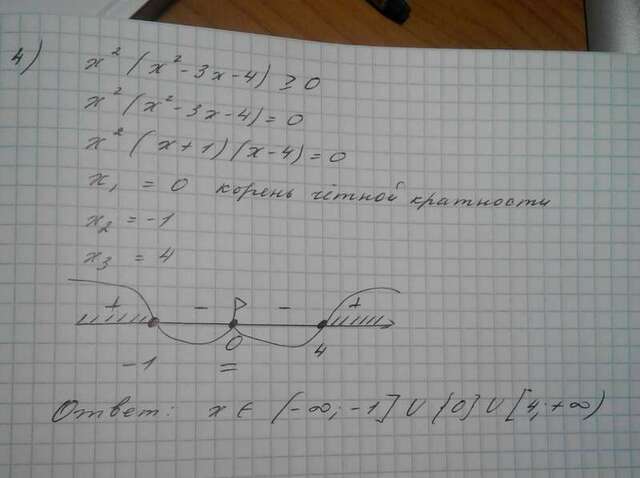 4) x² (x² - 3x - 4) ≥ 0
x² (x² - 3x - 4) = 0
x² (x + 1) (x - 4) = 0
x₁ = 0 корень чётной кратности
x₂ = -1
x₃ = 4
+ - - +
-1 0 4
=
Ответ: x ∈ (-∞; -1] ∪ {0} ∪ [4; +∞)